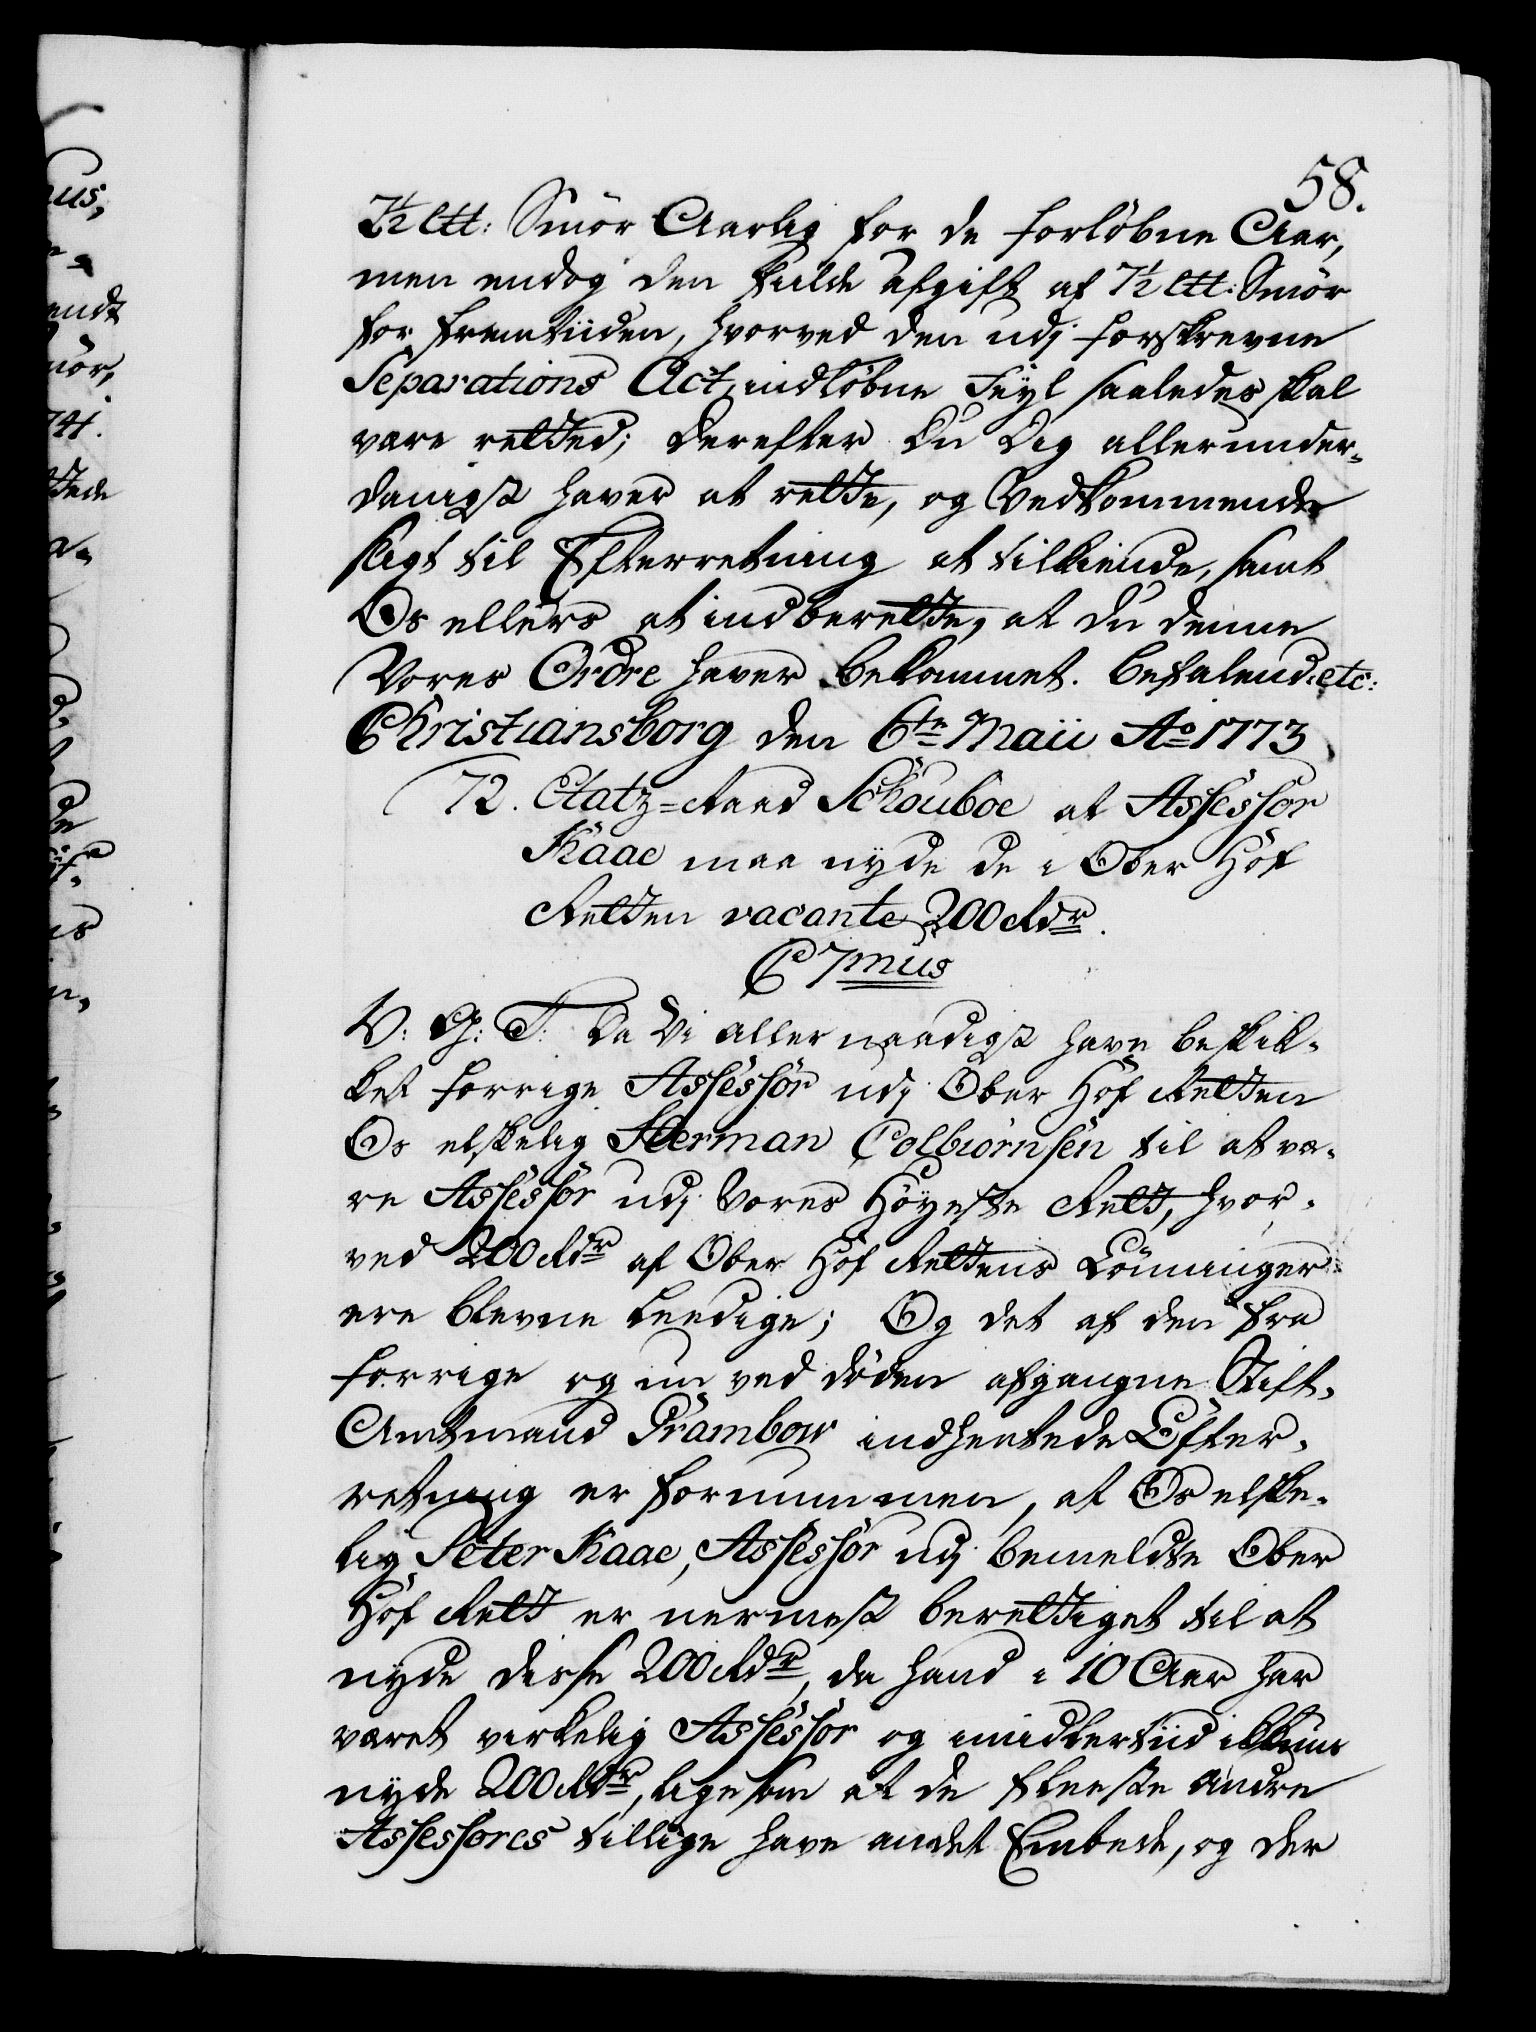 58.
7½ ℔: Smör Aarlig for de forløbne Aar,
men endog den fulde Afgift af 7½ ℔: Smör
for Fremtiiden, hvorved den udj forskrevne
Separations Act indløbne Feyl saaledes skal
være rettet; Derefter Du Dig allerunder-
danigst haver at rette, og Vedkommende
sligt til Efterretning at tilkiende, samt
Os ellers at indberette, at Du denne
Vores Ordre haver bekommet. Befalend: etc:
Christiansborg den 6te Maii Ao 1773
72. Etatz-Raad Schouboe at Assessor
Kaae maa nyde de i Ober Hof
Retten vacante 200 Rdr.
C 7mus
V: G: T: Da Vi Allernaadigst have beskik-
ket forrige Assessor udj Ober Hof Retten
Os elskelig Herman Colbiørnsen til at væ-
re Assessor udj Vores Höyeste Rett, hvor-
ved 200 Rdr af Ober Hof Rettens Lönninger
ere blevne leedige; Og det af den fra
forrige og nu ved døden afgangne Stift-
Amtmand Grambow indhentede Efter-
retning er fornummen, at Os elske-
lig Peter Kaae, Assessor udj bemeldte Ober
Hof Rett er nermest berettiget til at
nyde disse 200 Rdr, da hand i 10 Aar har
været virkelig Assessor og imidlertiid ikkuns
nyde 200 Rdr, ligesom at de fleeste andre
Assessores tillige have andet Embede, og der